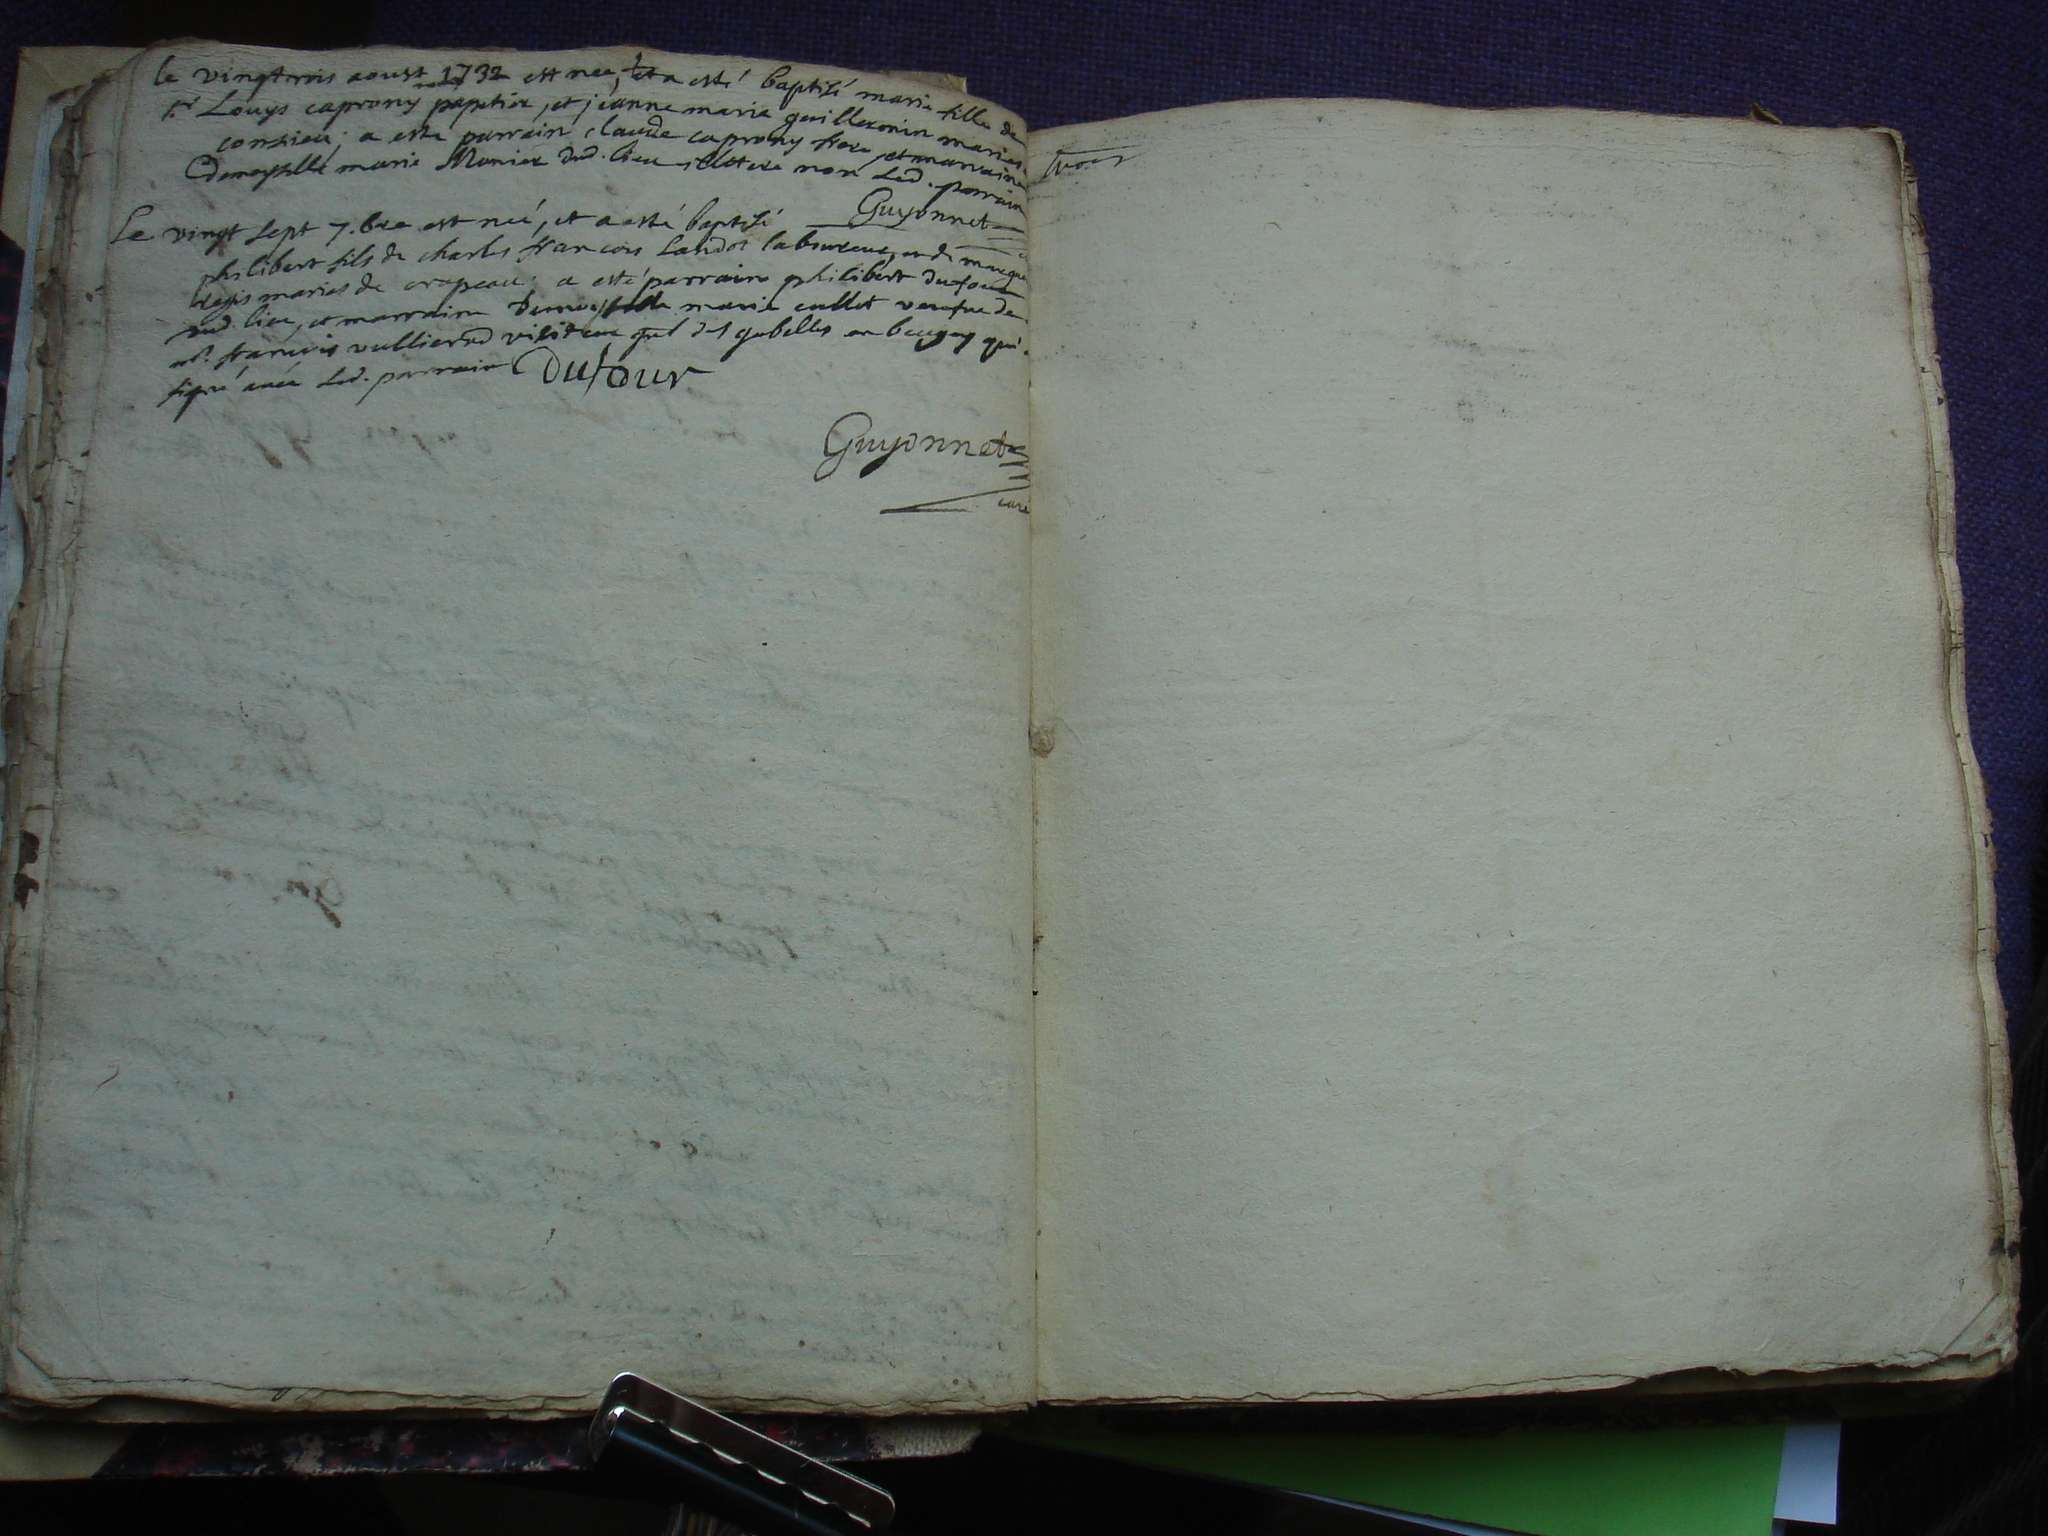 le vingtrois aoust 1732 est nee, et a esté baptisé marie fille de
sr Louys caprony papetier, et jeanne marie guillermin mariés
conzieu; a este parrain claude caprony frere et marraine
demoyselle marie Monier dud. lieu illittere non led. parrain
Guyonnet
Le vingt sept 7.bre est neé, et a esté baptisé
philibert fils de charles francois Landot laboureur, et de
mariés de crapeau; a esté parrain philibert dufour
dud. lieu, et marraine Demoyselle marie cullet veufve de
mr. francois vullierod visiteur gnl des gabelles en beugey qui
signé avec led. parrain Dufour
Guyonnet
curé